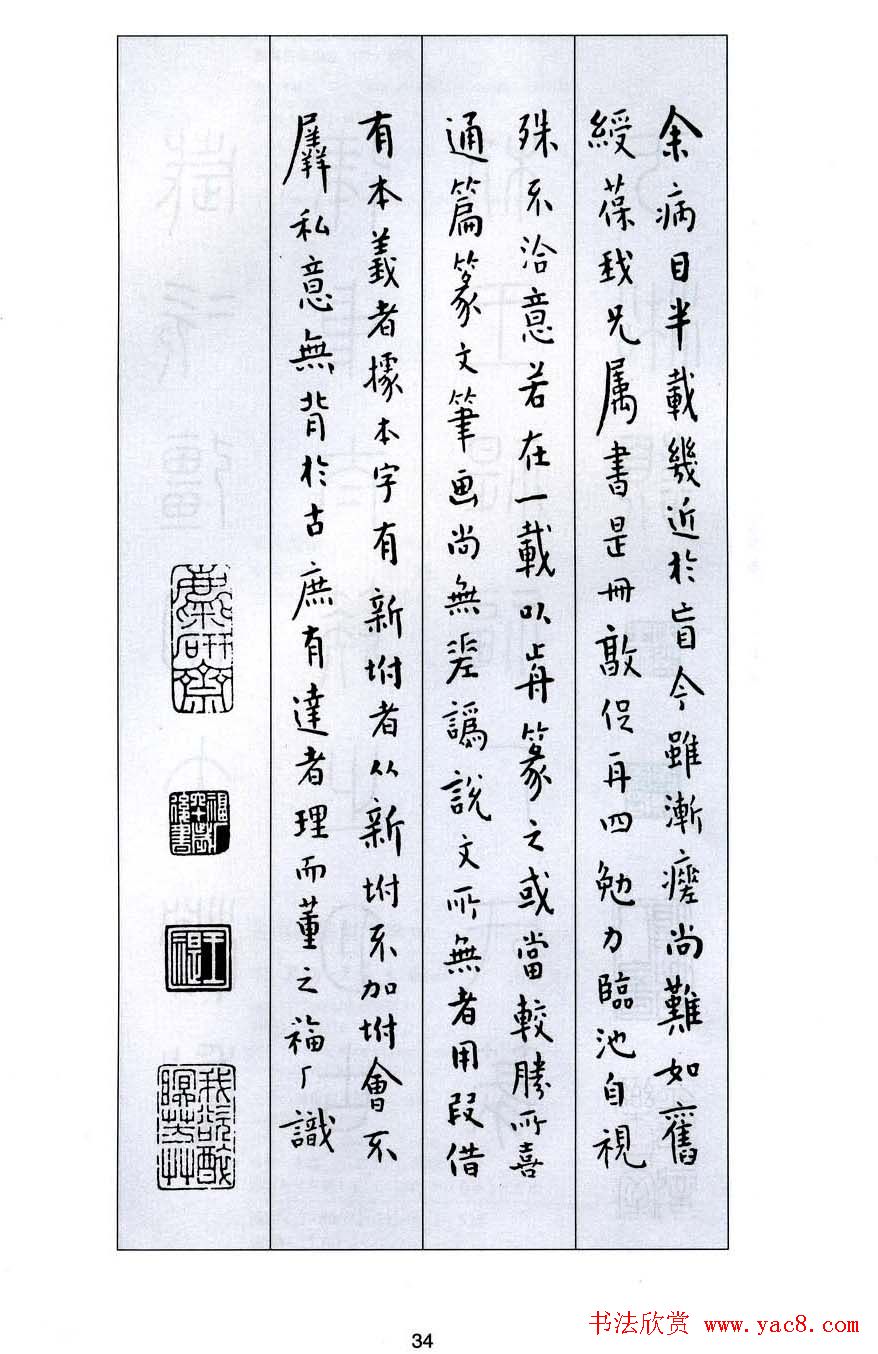 余病目半載幾近於盲今雖漸瘥尚難如舊
綬葆我兄属書是冊敦促再四勉力臨池自視
殊不洽意若在一載以歬篆之或當較勝所喜
通篇篆文筆画尚無差譌說文所無者用叚借
有本義者據本字有新坿者从新坿不加坿會不
羼私意無背於古庶有達者理而董之福厂識
麋研齋
福厂六十歲後書
王禔
我欲醉眠芳草
34
书法欣赏 www.yac8.com